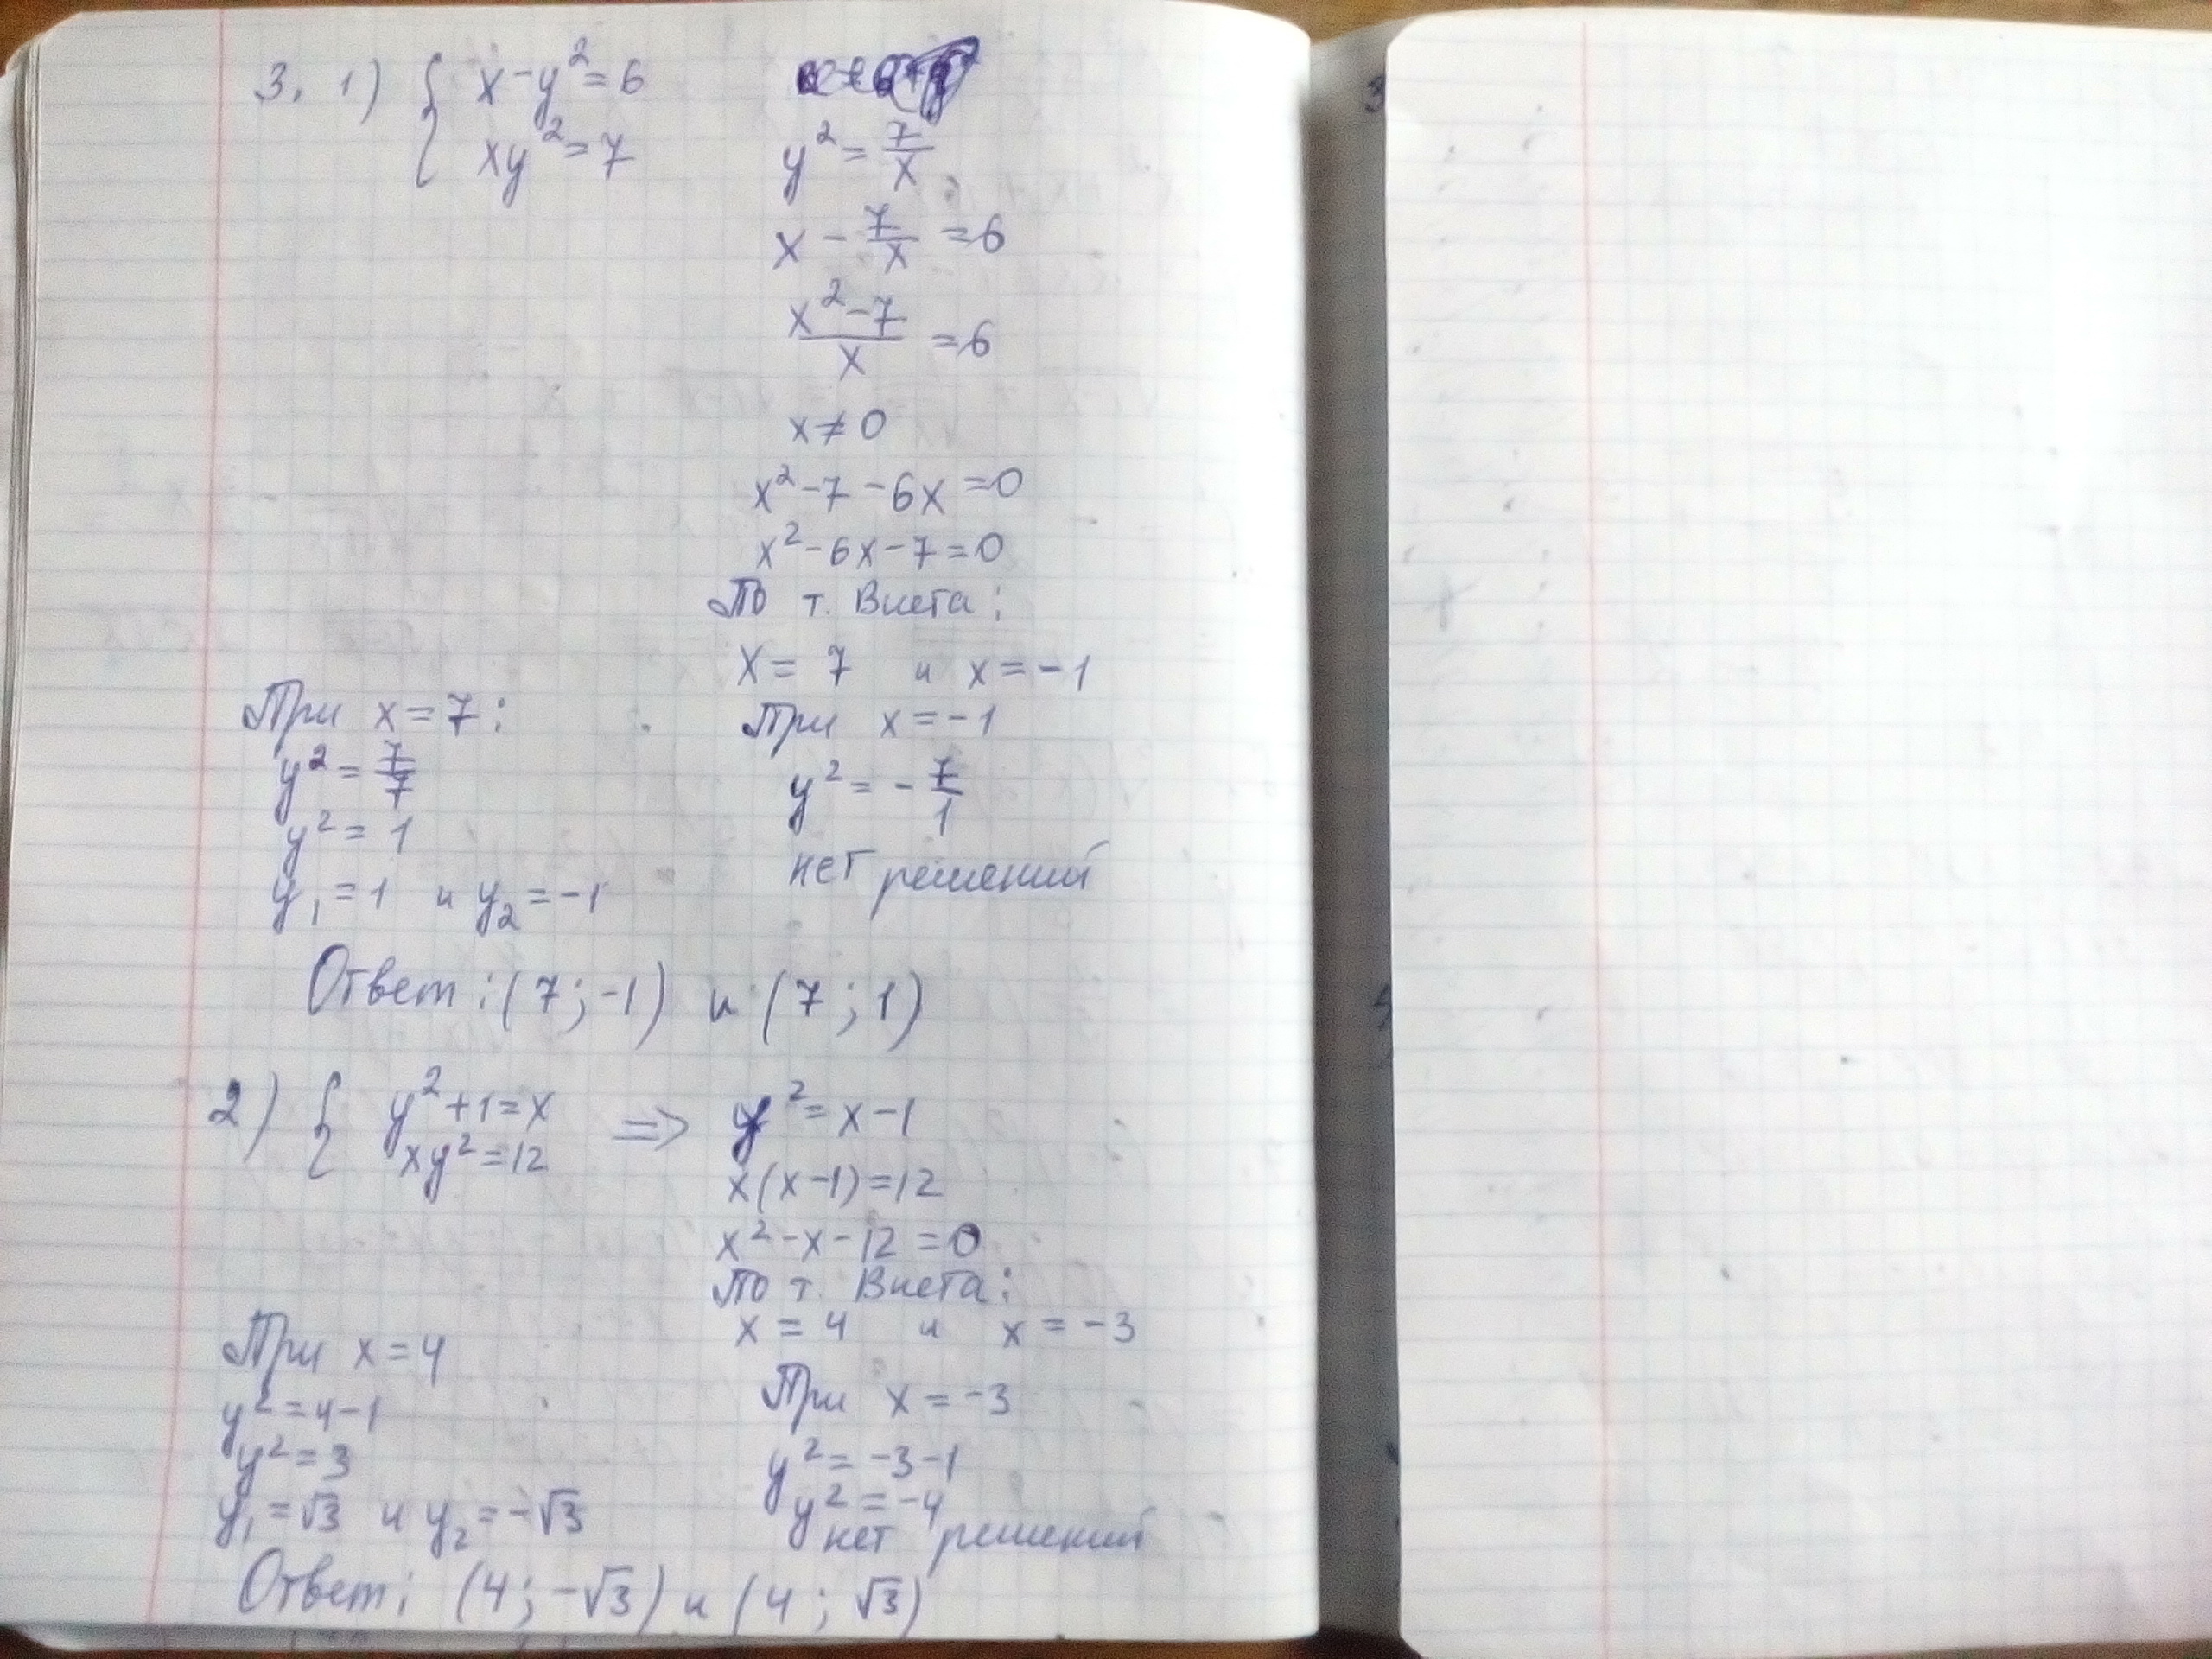 3. 1) { x-y²=6
xy²=7
y² = 7/x
x - 7/x = 6
(x²-7)/x = 6
x≠0
x²-7-6x=0
x²-6x-7=0
По т. Виета:
x = 7 и x=-1
При x=7:
y² = 7/7
y² = 1
y₁ = 1 и y₂ = -1
При x=-1
y² = - 7/1
нет решений
Ответ: (7; -1) и (7; 1)
2) { y²+1=x
xy²=12
=> y² = x-1
x(x-1)=12
x²-x-12=0
По т. Виета:
x = 4 и x = -3
При x=4
y²=4-1
y²=3
y₁=√3 и y₂=-√3
При x=-3
y²=-3-1
y²=-4
нет решений
Ответ: (4; -√3) и (4; √3)